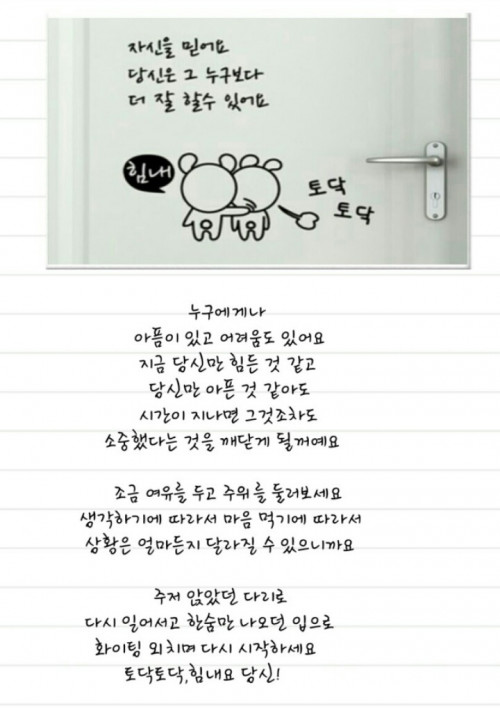 자신을 믿어요
당신은 그 누구보다
더 잘 할수 있어요
힘내
토닥
토닥
누구에게나
아픔이 있고 어려움도 있어요
지금 당신만 힘든 것 같고
당신만 아픈 것 같아도
시간이 지나면 그것조차도
소중했다는 것을 깨닫게 될꺼예요
조금 여유를 두고 주위를 둘러보세요
생각하기에 따라서 마음 먹기에 따라서
상황은 얼마든지 달라질 수 있으니까요
주저 앉았던 다리로
다시 일어서고 한숨만 나오던 입으로
화이팅 외치며 다시 시작하세요
토닥토닥,힘내요 당신!